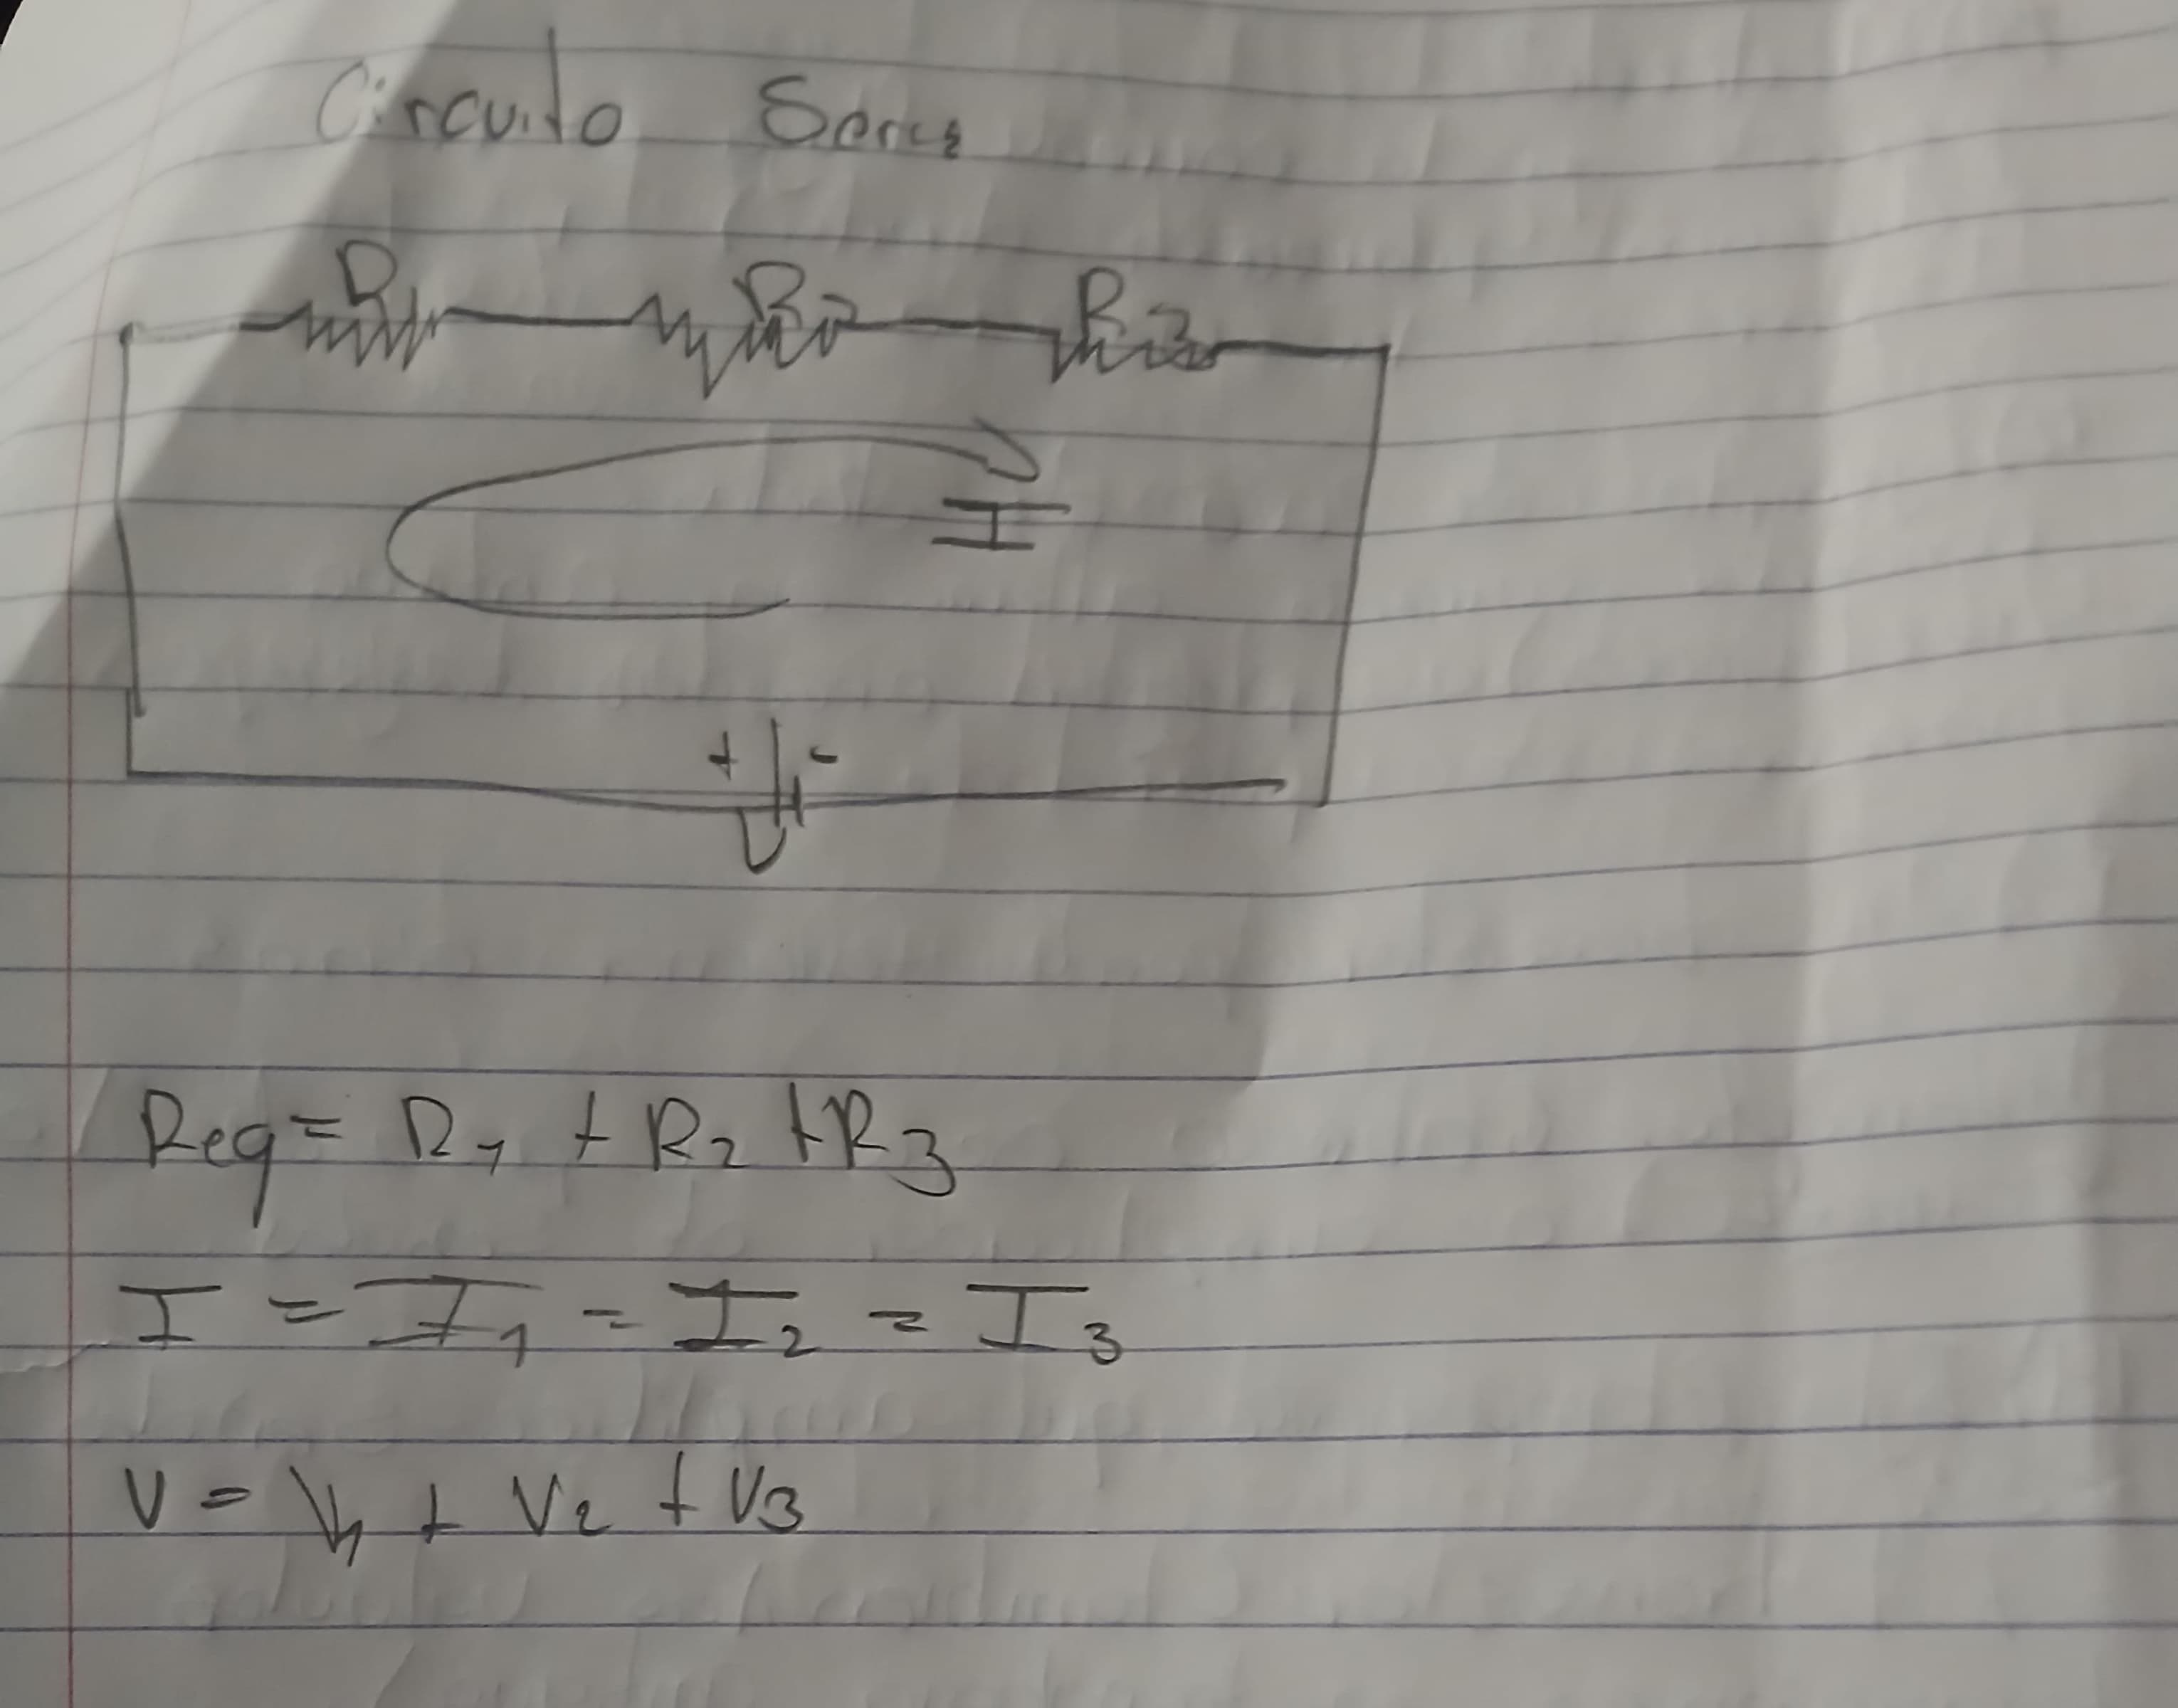 Circuito Serie
R1 R2 R3
I
+ -
V
Req = R1 + R2 + R3
I = I1 = I2 = I3
V = V1 + V2 + V3